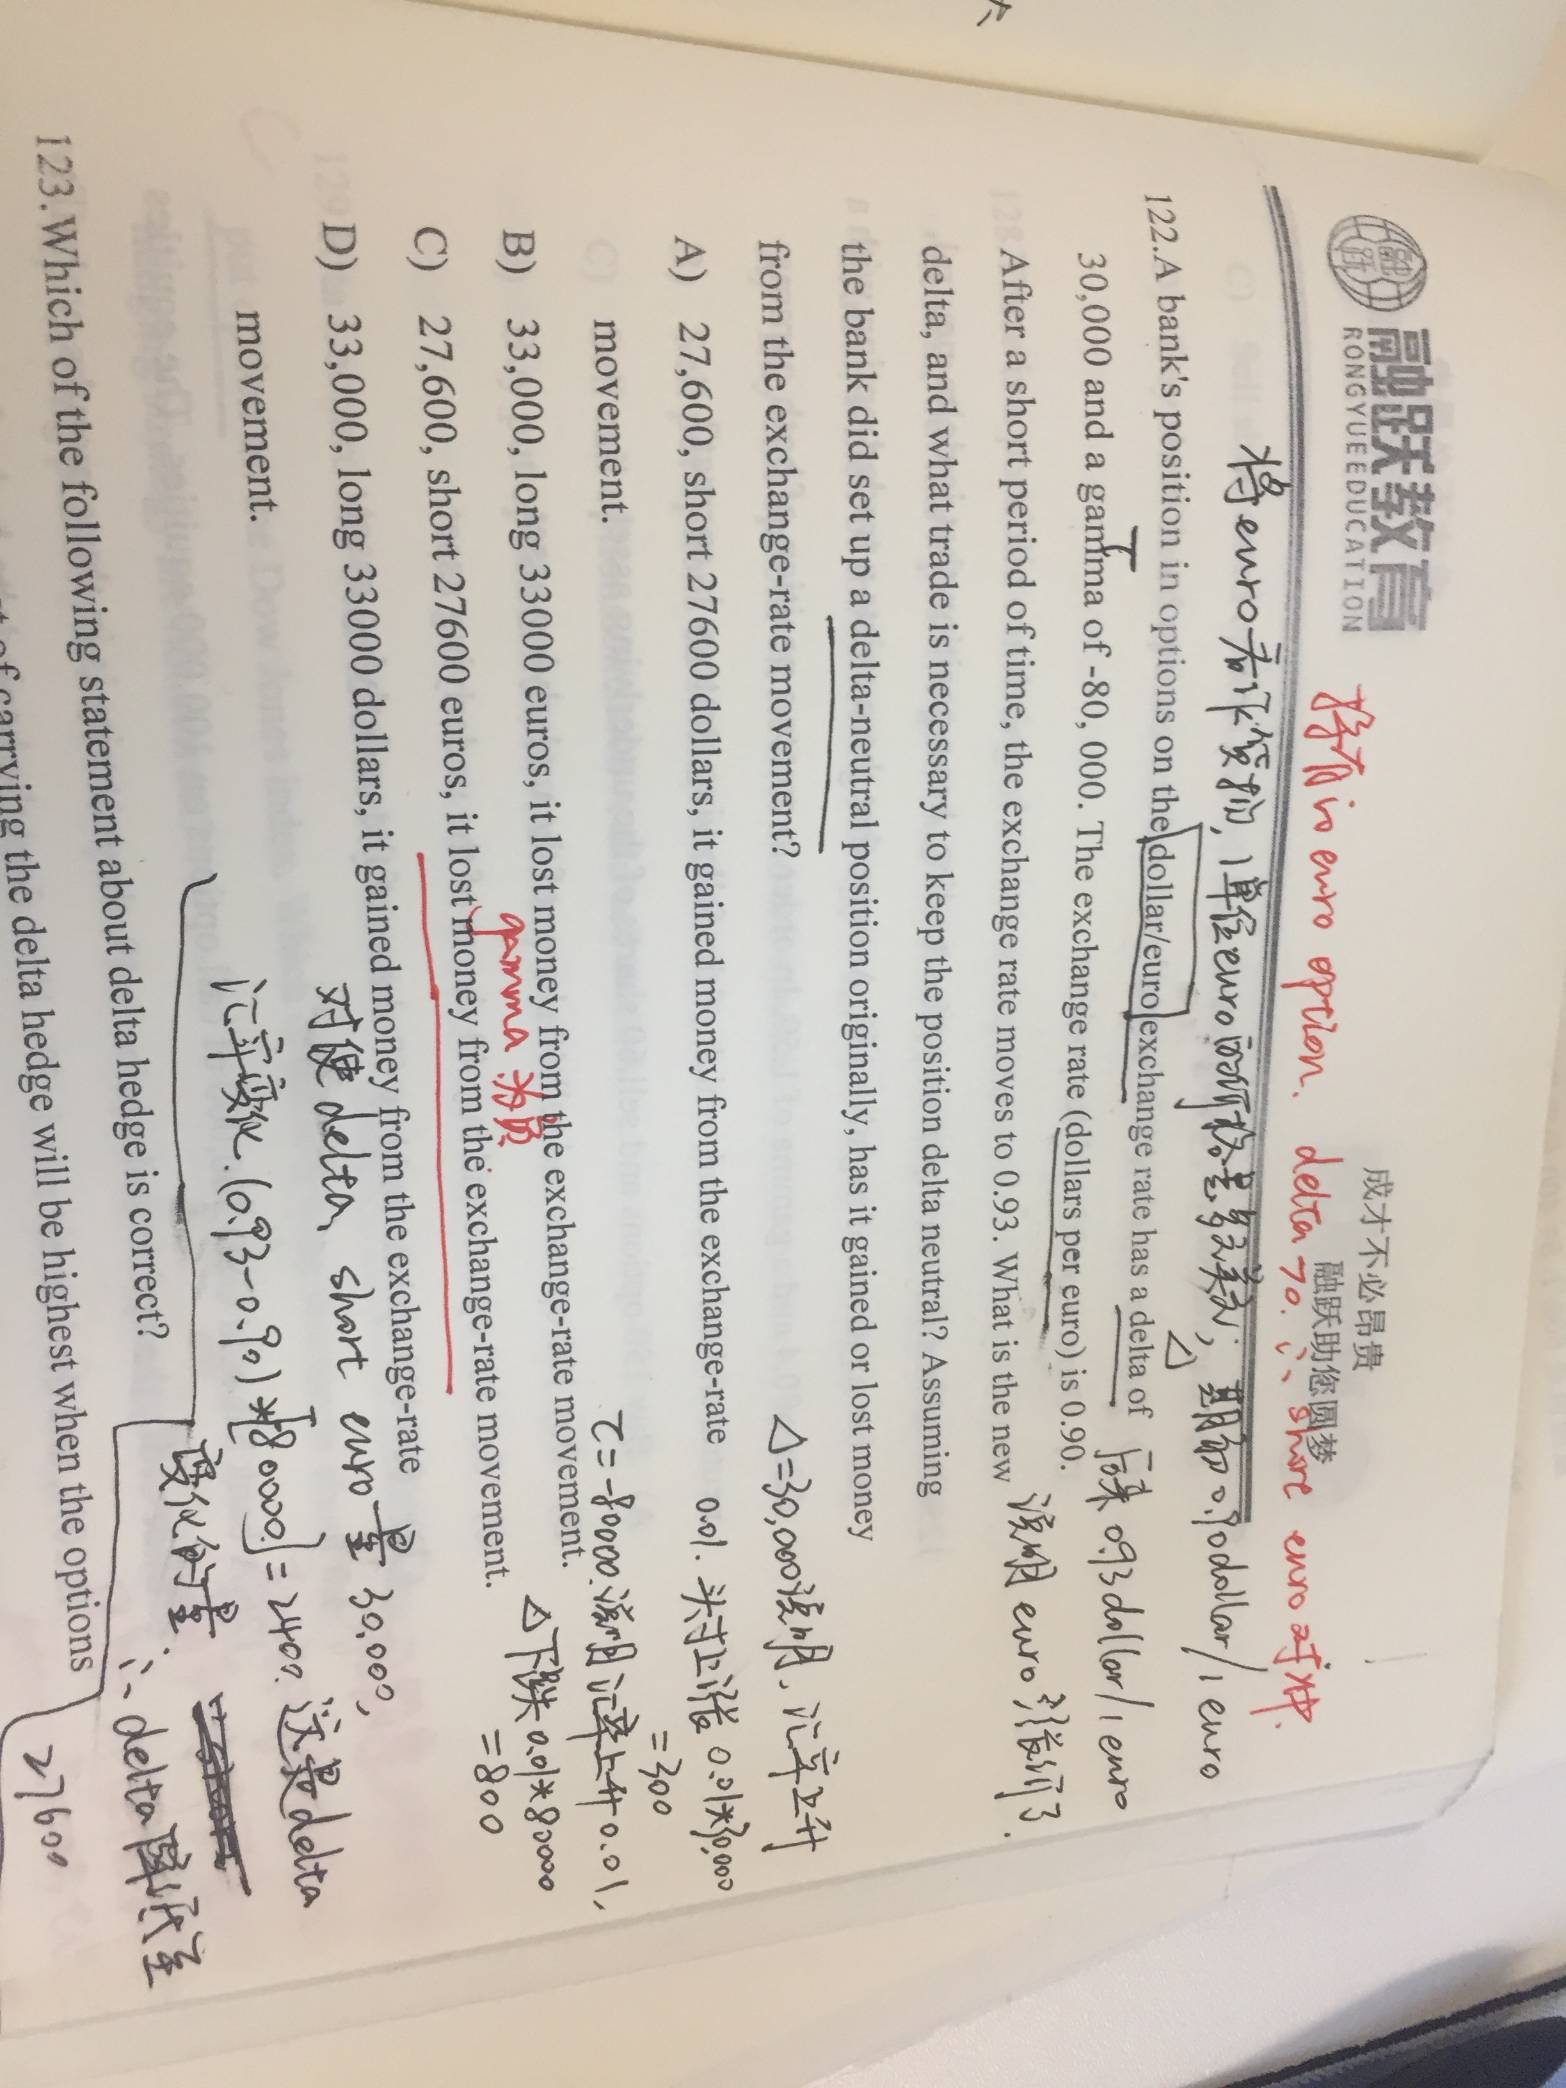 融跃教育
RONGYUEEDUCATION
成才不必昂贵
融跃助您圆梦
持有 euro option. delta >0. ∴ short euro 对冲.
将euro看求货物, 1单位euro 的价格是多少美元, 期初 0.90dollar/1 euro
122.A bank's position in options on the dollar/euro exchange rate has a delta of
Δ
后来 0.93dollar/1 euro
30,000 and a gamma of -80, 000. The exchange rate (dollars per euro) is 0.90.
After a short period of time, the exchange rate moves to 0.93. What is the new
说明 euro 涨价了.
delta, and what trade is necessary to keep the position delta neutral? Assuming
the bank did set up a delta-neutral position originally, has it gained or lost money
from the exchange-rate movement?
Δ=30,000说明, 汇率上升
A) 27,600, short 27600 dollars, it gained money from the exchange-rate
0.01. 头寸上涨 0.01*30,000
=300
movement.
τ=-80000.说明汇率上升0.01,
B) 33,000, long 33000 euros, it lost money from the exchange-rate movement.
Δ下跌0.01*80000
=800
gamma 为负
C) 27,600, short 27600 euros, it lost money from the exchange-rate movement.
D) 33,000, long 33000 dollars, it gained money from the exchange-rate
movement.
对使 delta, short euro 量 30,000,
汇率变化.(0.93-0.90)*[80000.]=2400. 这是delta
变化的量. ∴ delta 降低至
27600
123.Which of the following statement about delta hedge is correct?
of carrying the delta hedge will be highest when the options